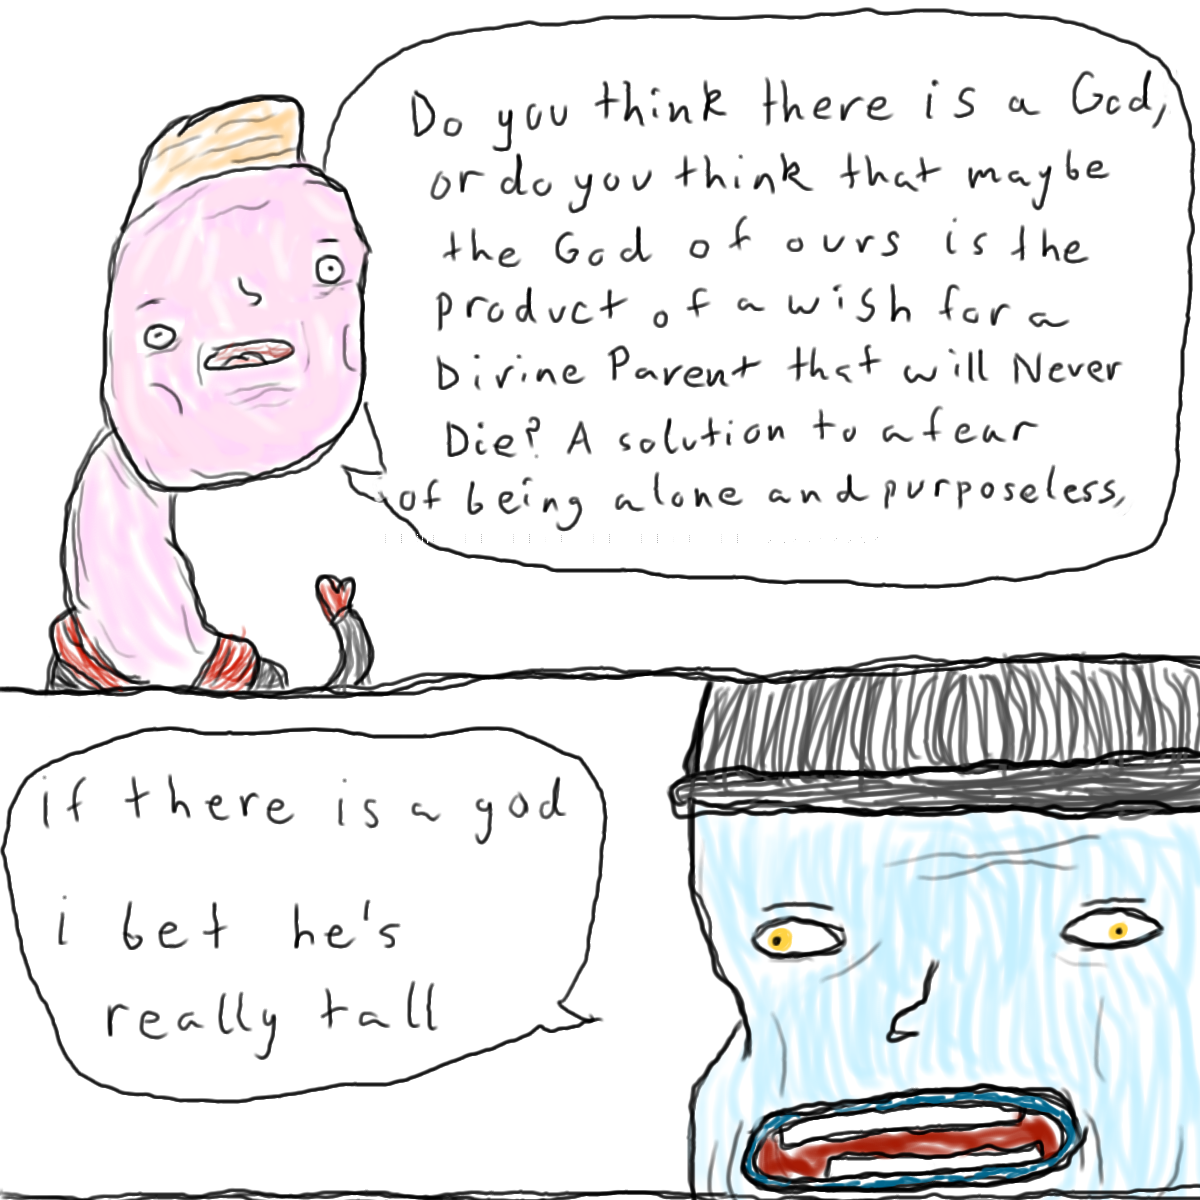 Do you think there is a God,
or do you think that maybe
the God of ours is the
product of a wish for a
Divine Parent that will Never
Die? A solution to a fear
of being alone and purposeless,
if there is a god
i bet he's
really tall